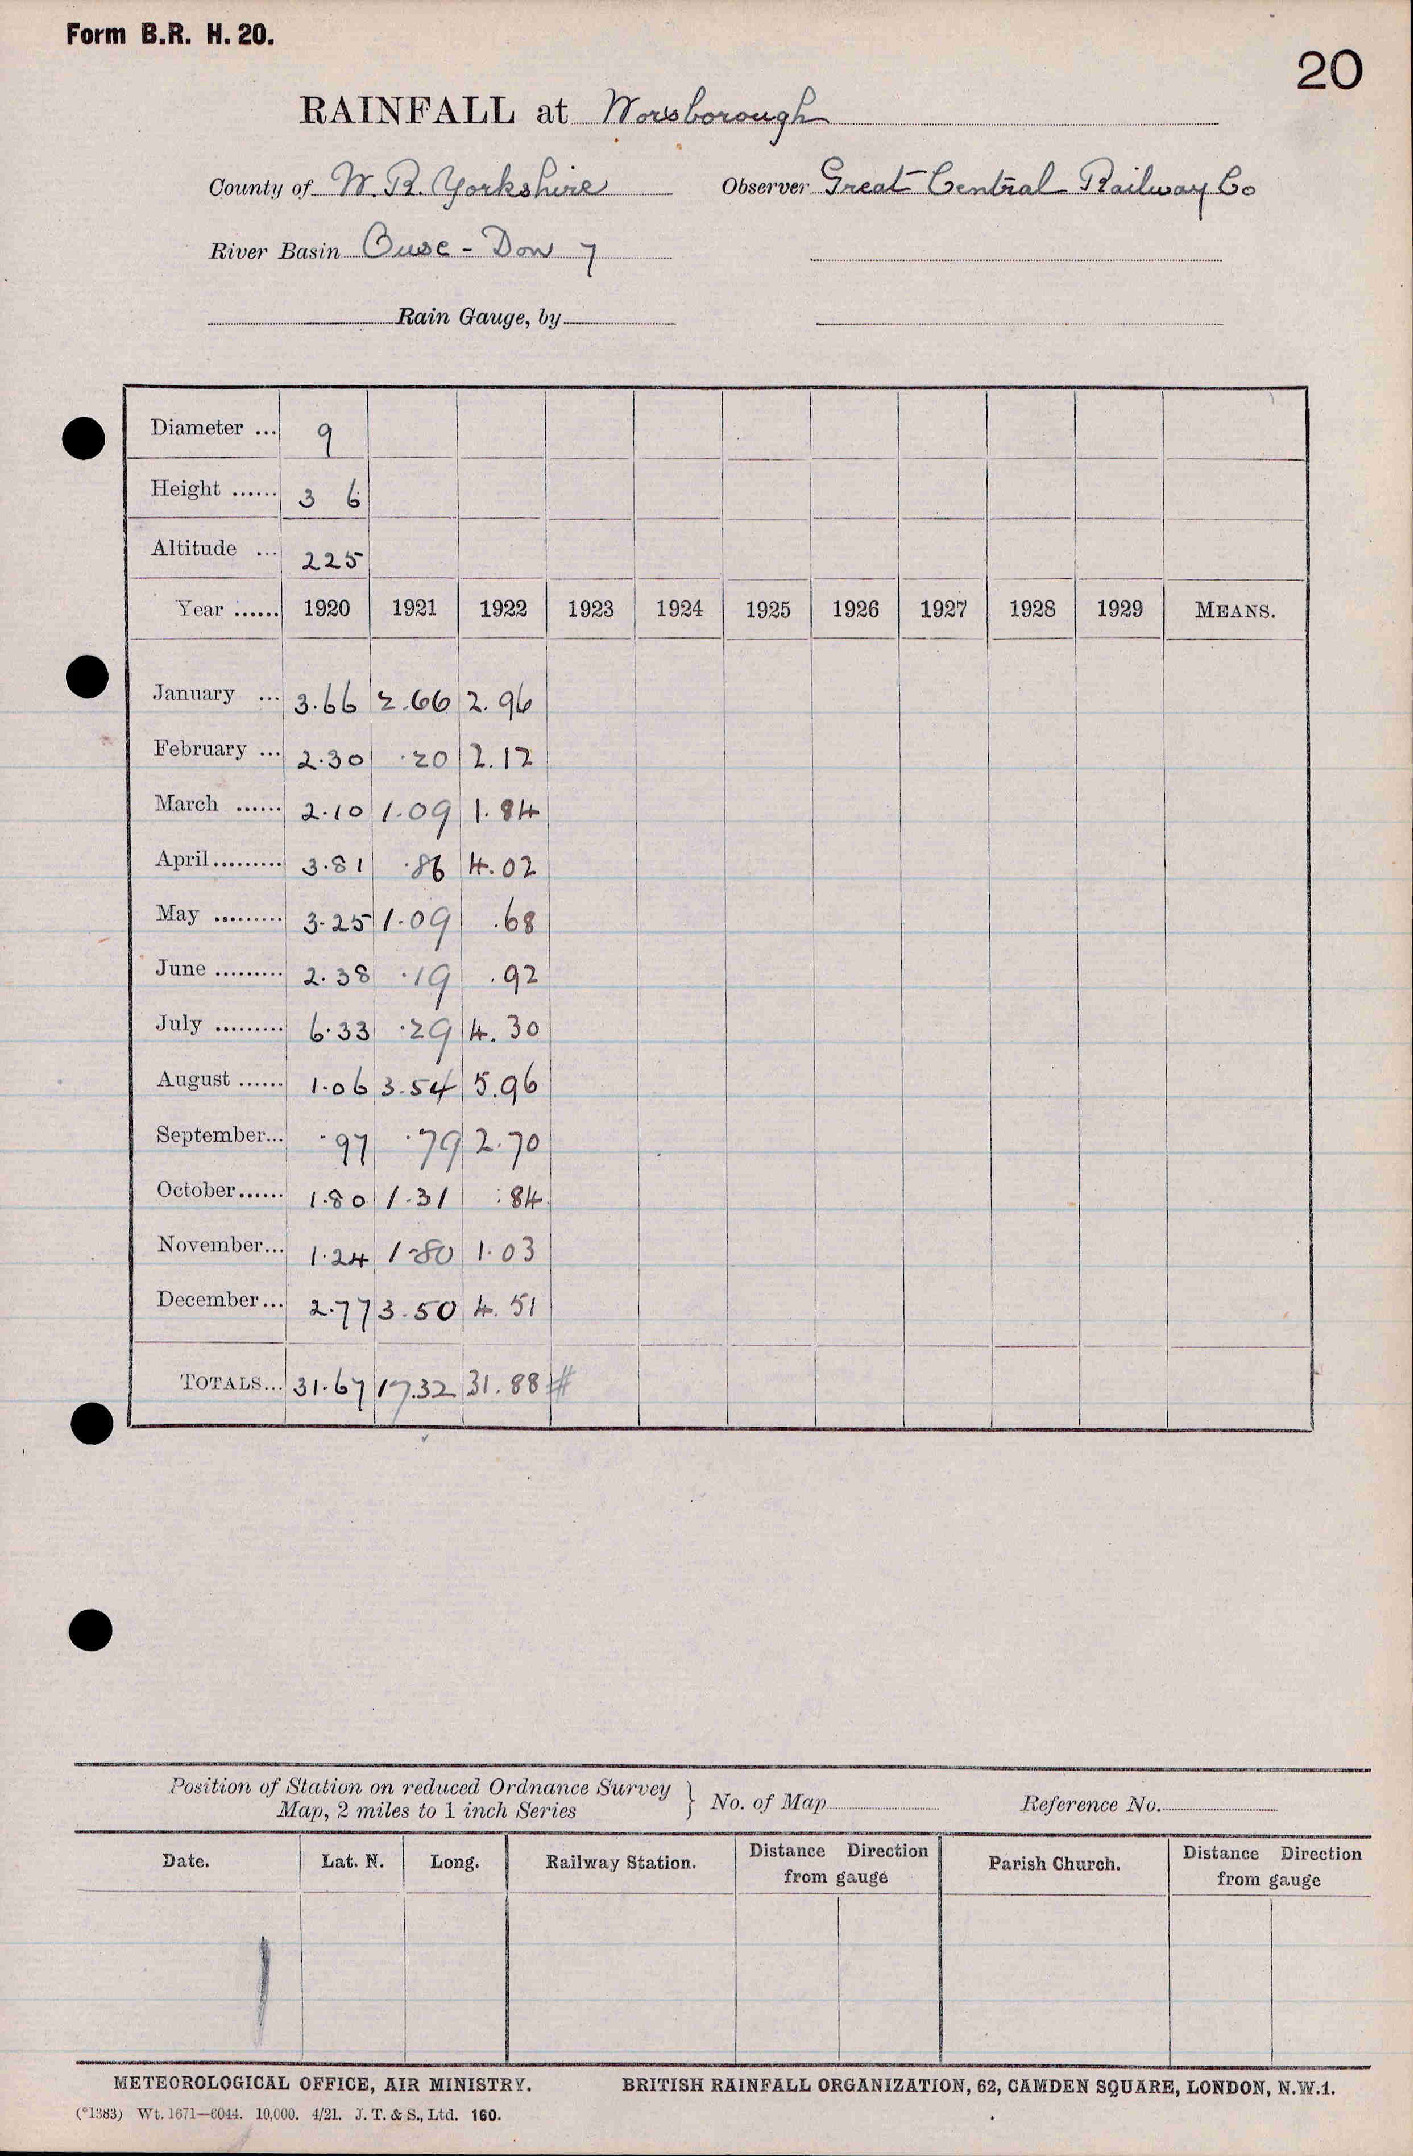 Form B.R. H. 20.
20
RAINFALL at Worsborough
County of W. R. Yorkshire Observer Great Central Railway Co
River Basin Ouse - Don 7
Rain Gauge, by
Diameter ... 9
Height ...... 3 6
Altitude ... 225
Year ...... 1920 1921 1922 1923 1924 1925 1926 1927 1928 1929 MEANS.
January ... 3.66 2.66 2.96
February ... 2.30 .20 2.12
March ...... 2.10 1.09 1.84
April......... 3.81 .86 4.02
May ......... 3.25 1.09 .68
June ......... 2.38 .19 .92
July ......... 6.33 .29 4.30
August ...... 1.06 3.54 5.96
September... .97 .79 2.70
October...... 1.80 1.31 .84
November... 1.24 1.80 1.03
December... 2.77 3.50 4.51
TOTALS... 31.67 17.32 31.88 #
Position of Station on reduced Ordnance Survey
Map, 2 miles to 1 inch Series } No. of Map Reference No.
Date. Lat. N. Long. Railway Station. Distance Direction from gauge Parish Church. Distance Direction from gauge
METEOROLOGICAL OFFICE, AIR MINISTRY. BRITISH RAINFALL ORGANIZATION, 62, CAMDEN SQUARE, LONDON, N.W.1.
(*1383) Wt. 1671—6044. 10,000. 4/21. J. T. & S., Ltd. 160.